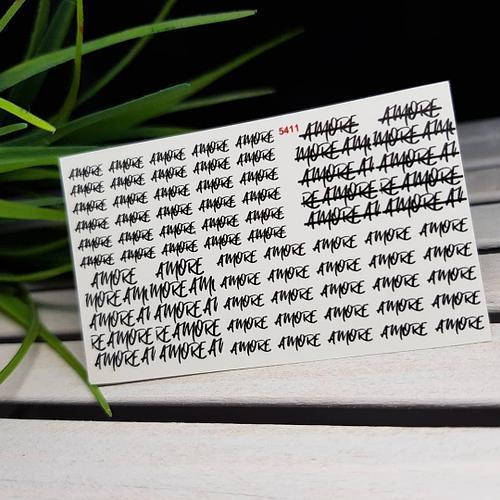 AMORE AMORE AMORE AMORE AMORE
AMORE AMORE AMORE AMORE AMORE
AMORE AMORE AMORE AMORE AMORE
AMORE AMORE AMORE AMORE AMORE
AMORE AMORE AMORE AMORE AMORE
AMORE AMORE AMORE AMORE AMORE
5411
AMORE AMORE
MORE AM MORE AM
AMORE AI AMORE AI
RE AMORE RE AMORE
AMORE AI AMORE AI
AMORE AMORE
MORE AM MORE AM
AMORE AI AMORE AI
RE AMORE RE AMORE
AMORE AI AMORE AI
AMORE AMORE AMORE AMORE AMORE
AMORE AMORE AMORE AMORE AMORE
AMORE AMORE AMORE AMORE AMORE
AMORE AMORE AMORE AMORE AMORE
AMORE AMORE AMORE AMORE AMORE